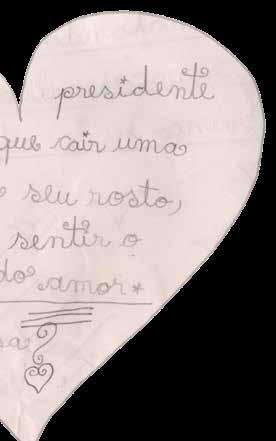 presidente
que cair uma
seu rosto,
sentir o
do amor*
sa